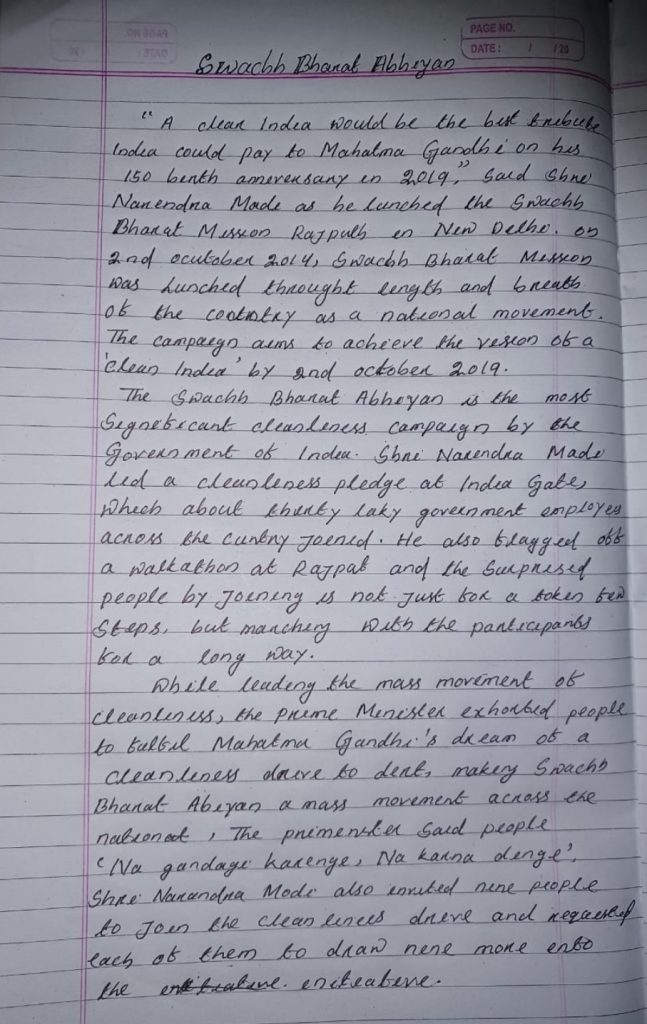 PAGE NO.
DATE: / /20
Swachh Bharat Abheyan
" A clean India would be the best tribute
India could pay to Mahatma Gandhi on his
150 benth aneversary in 2019," Said Shri
Narendra Made as he lunched the Swachh
Bharat Messeon Rajpulh en New Delhe. on
2nd ocutober 2014, Swachh Bharat Messeon
was Lunched throught length and breath
of the cootntry as a national movement.
The campaegn aems to achieve the veseon of a
'clean India' by 2nd october 2019.
The Swachh Bharat Abheyan is the most
Segneficant cleanleness campaign by the
Government of Indea. Shri Narendra Made
led a cleanleness pledge at Indea Gate,
wheeh about therty laky government employes
across the cuntry Joened. He also flagged off
a walkathon at Rajpat and the Surprised
people by Joening is not Just for a token few
Steps, but marcheng with the participants
for a long way.
While leadeng the mass movement of
cleanleness, the Preme Menister exhorted people
to fulfil Mahatma Gandhi's dream of a
cleanleness dreve to dert, makeng Swachh
Bharat Abeyan a mass movement across the
nationat, The premenster Said people
'Na gandage karenge, Na karna denge',
Shri Narandra Mode also envited nene people
to Join the cleanleness dreve and requested
each of them to draw nene more ento
the eneteateve.